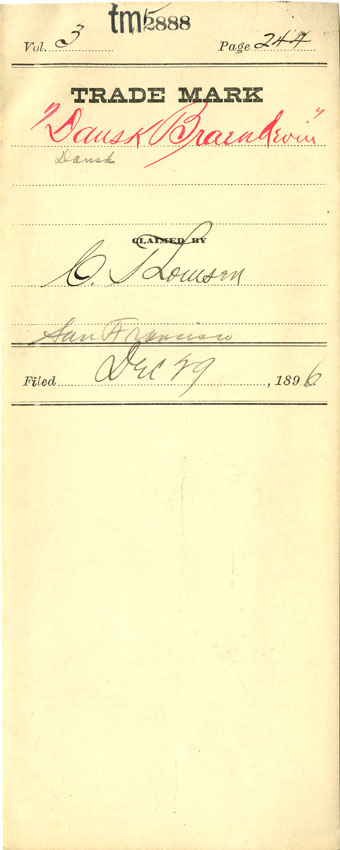 tm 2888
Vol. 3 Page 244
TRADE MARK
"Dansk Braendevin"
Dansk
CLAIMED BY
C. Thomsen
San Francisco
Filed Dec 29, 1896